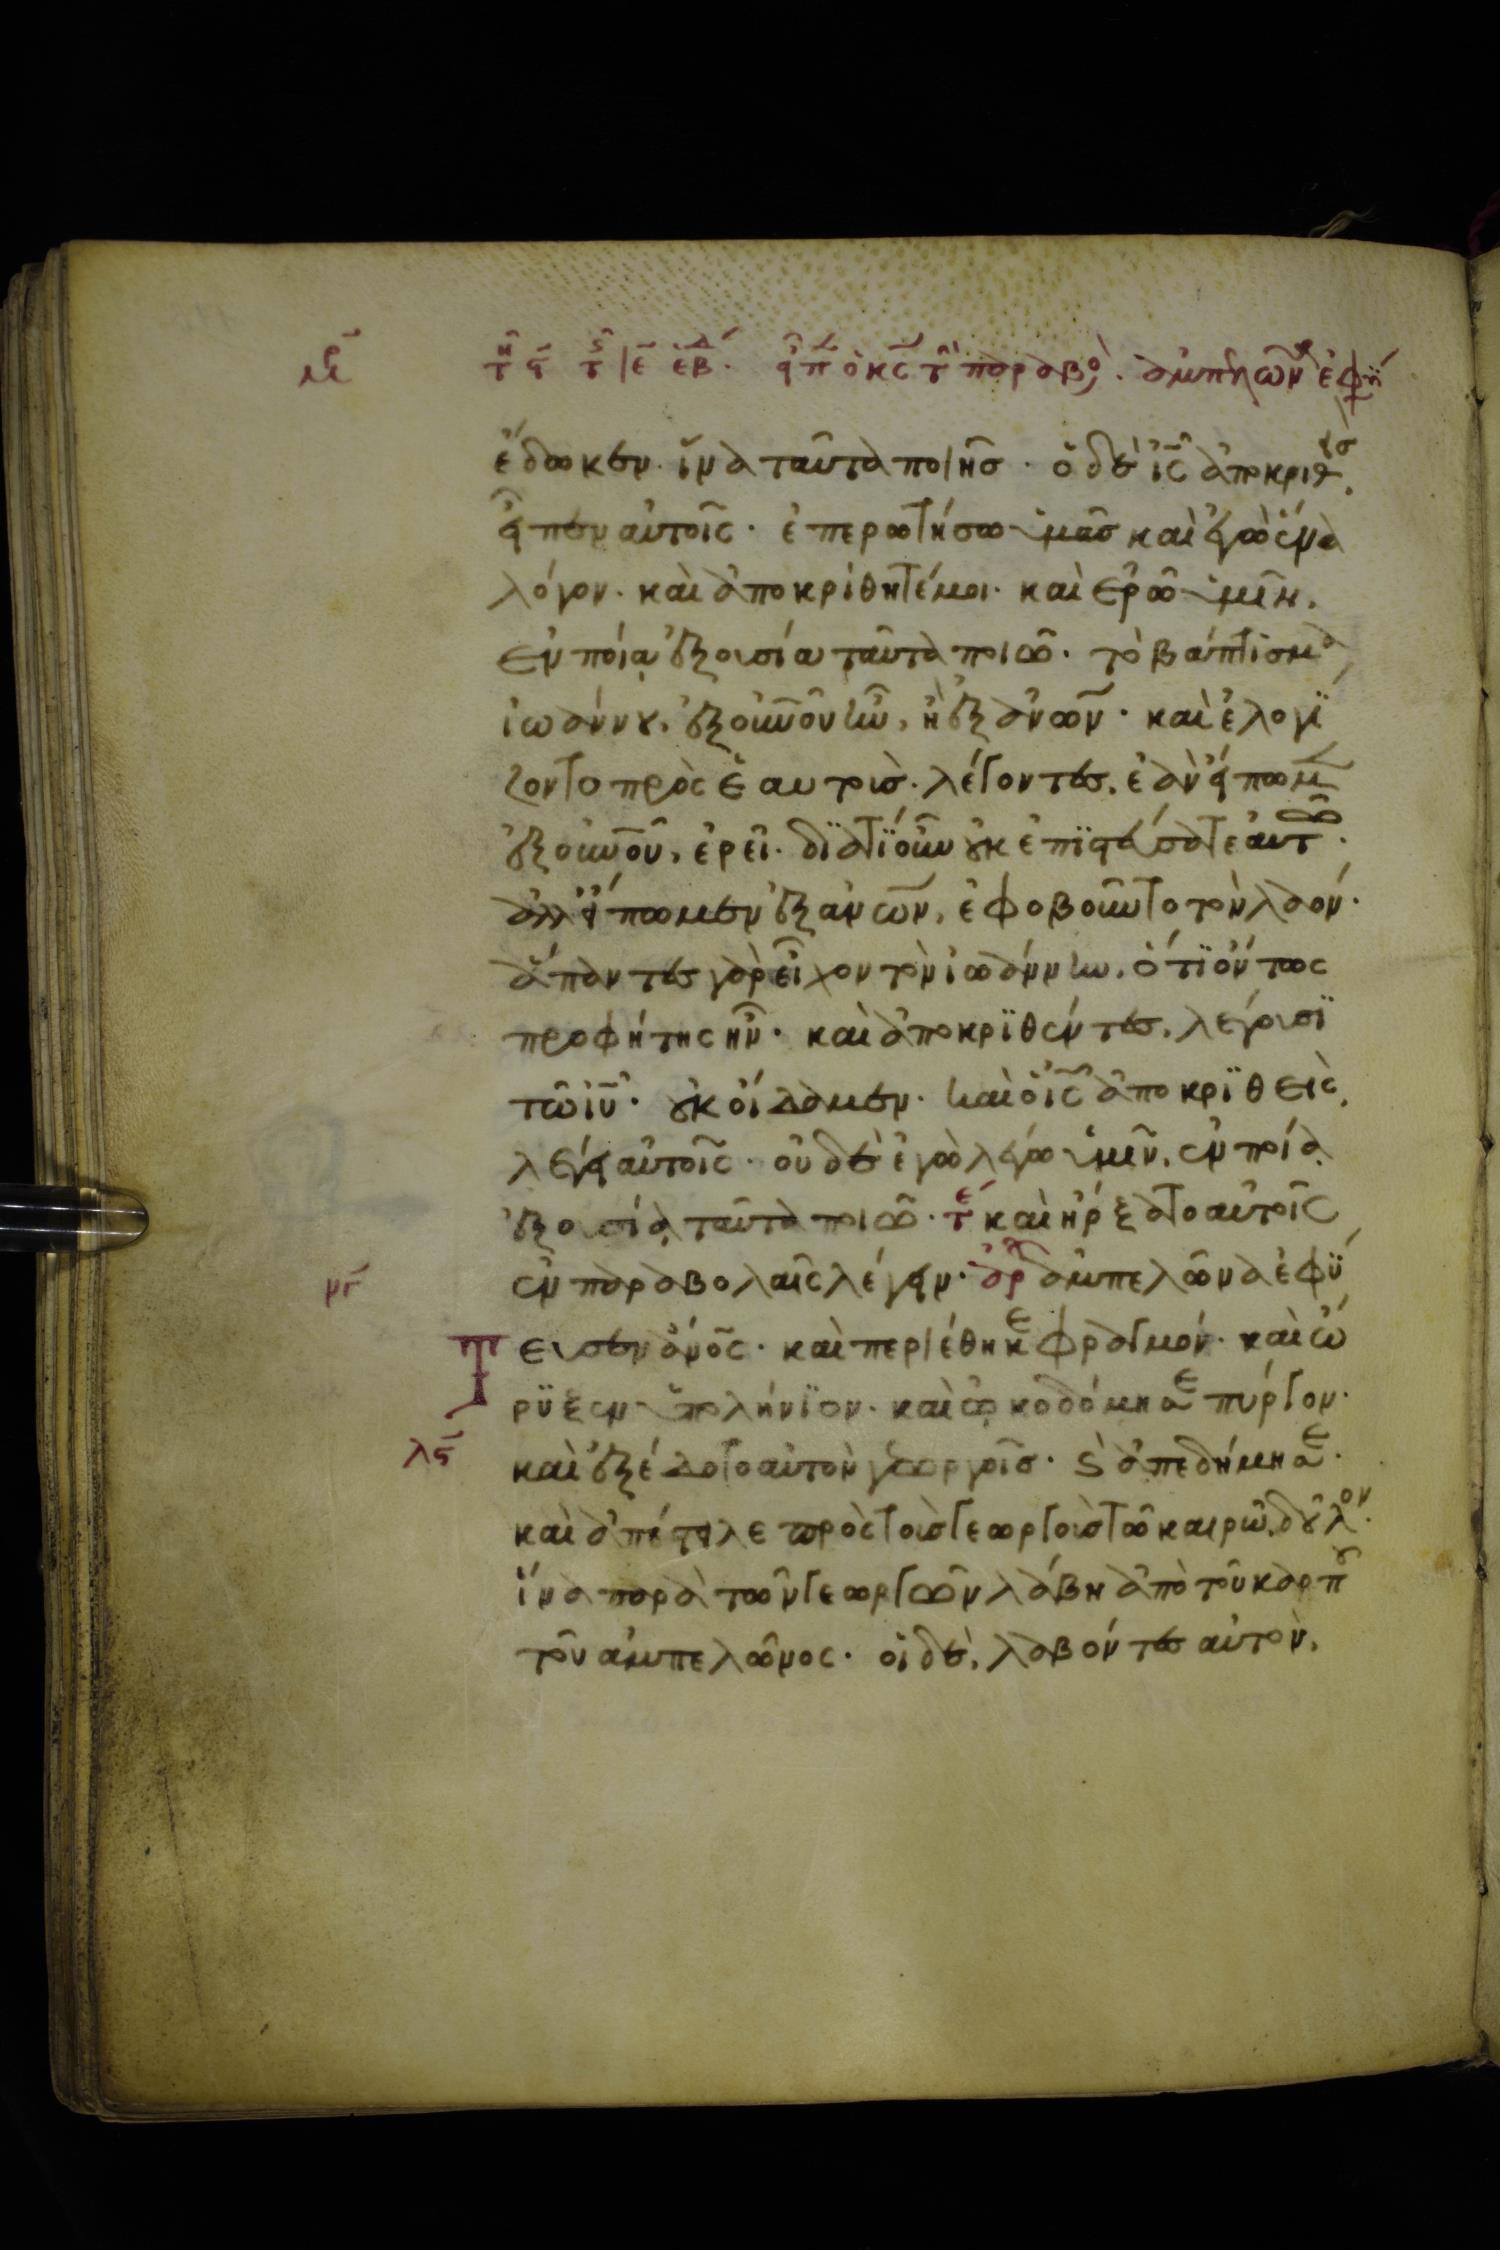 με τῇ ϛ τ ιε εβδ. εἶπ ὁ κς τ παραβο. ἀμπελῶνα ἐφυ
ἔδωκεν. ἵνα ταῦτα ποιῆσ. ὁ δὲ ις ἀποκριθεὶσ.
εἶπεν αὐτοῖς. ἐπερωτήσω ὑμᾶσ καὶ ἐγὼ ἕνα
λόγον. καὶ ἀποκρίθητέ μοι. καὶ ἐρῶ ὑμῖν.
ἐν ποία ἐξουσία ταῦτα ποιῶ. τὸ βάπτισμα
ἰωάννου. ἐξ οὐνοῦ ἦν, ἢ ἐξ ἀνων. καὶ ἐλογΐ
ζοντο πρὸς ἑαυτοὺσ. λέγοντεσ. ἐὰν εἴπωμ
ἐξ οὐνοῦ, ἐρεῖ. δϊατΐ οὖν οὐκ ἐπϊστεύσατε αὐτῶ.
ἀλλ εἴπωμεν ἐξ ἀνων, ἐφοβοῦντο τὸν λαόν.
ἅπαντεσ γὰρ εἶχον τὸν ἰωάννην. ὅτϊ ὄντως
προφήτης ἦν. καὶ ἀποκρϊθέντεσ. λέγουσϊ
τῶ ιυ. οὐκ οἴδαμεν. καὶ ὁ ις ἀποκρϊθεὶς.
λέγει αὐτοῖς. οὐδὲ ἐγὼ λέγω ὑμῖν. ἐν ποία
ἐξουσία ταῦτα ποιῶ. τε καὶ ἤρξατο αὐτοῖς
νγ ἐν παραβολαῖς λέγειν. ἀρ ἀμπελῶνα ἐφύ
τευσεν ἀνος. καὶ περιέθηκε φραγμόν. καὶ ὤ
ρϋξεν ὑπολήνϊον. καὶ ὠκοδόμησε πύργον.
λϛ καὶ ἐξέδοτο αὐτὸν γεωργοῖσ. ϗ ἀπεδήμησε.
καὶ ἀπέστειλε πρὸς τοὺσ γεωργοὺσ τῶ καιρῶ. δοῦλον.
ἵνα παρὰ τῶν γεωργῶν λάβη ἀπὸ τοῦ καρποῦ
τοῦ ἀμπελῶνος. οἱ δὲ, λαβόντεσ αὐτὸν.